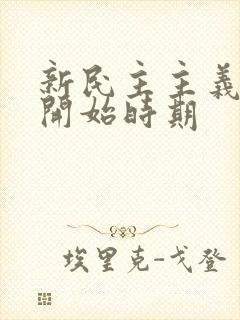 新民主主義
開始時期
埃里克-戈登